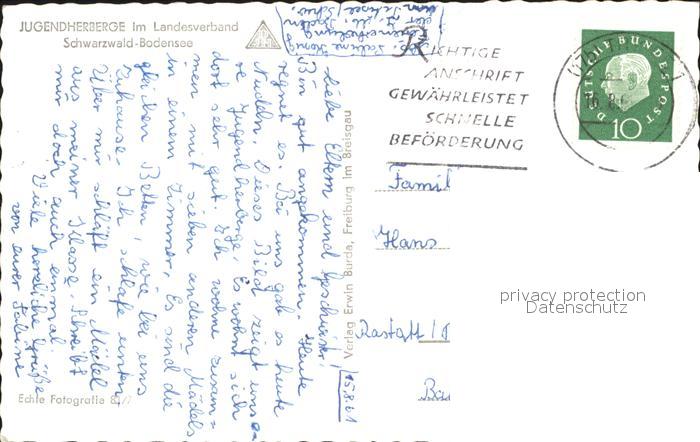 JUGENDHERBERGE im Landesverband
Schwarzwald-Bodensee
RICHTIGE
ANSCHRIFT
GEWÄHRLEISTET
SCHNELLE
BEFÖRDERUNG
DEUTSCHE BUNDESPOST
10
Famil
Hans
Rastatt / 
privacy protection
Datenschutz
Verlag Erwin Burda, Freiburg im Breisgau
15.8.61
Liebe Eltern und Geschwister!
Bin gut angekommen. Heute
regnet es. Bei uns gab es heute
Nudeln. Dieses Bild zeigt unse-
re Jugendherberge. Es wohnt sich
dort sehr gut. Ich wohne zusam-
men mit sieben anderen Mädels
in einem Zimmer. Es sind die
gleichen Betten, wie bei uns
zuhause. Ich schlafe unten,
über mir schläft ein Mädel
aus meiner Klasse. Schreibt
mir doch auch einmal.
Viele herzliche Grüße
von eurer Sabine
Echte Fotografie